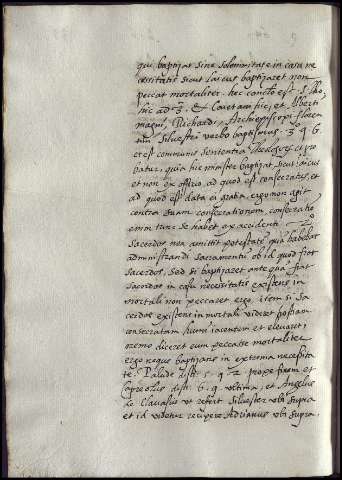 qui baptizat sine solemnitate in casu ne
cessitatis sicut laicus baptizaret non
peccat mortaliter. hec conclo est S. Tho.
hic ad 3. & Caietani hic, et Alberti
magni, Richard. Archiepiscopi floren
tini Silvestri verbo baptismus. 3 q 6.
et est communis sententia Theologorum et pro
batur, quia hic minister baptizat sicut laicus
et non ex officio ad quod est consecratus, et
ad quod est data ei gratia. ergo non agit
contra suam consecrationem. consecratio
enim tunc se habet ex accidenti. 2o
sacerdos non amittit potestatem quam habebat
administrandi sacramentum ob id quod fiat
sacerdos, sed si baptizaret ante quam fiat
sacerdos in casu necessitatis existens in
mortali non peccaret ergo. item si sa
cerdos existens in mortali videret hostiam
consecratam humi iacentem et elevaret,
nemo diceret eum peccasse mortaliter
ergo neque baptizans in extrema necessita
te. Palude dist. 5. q 2. prope finem et
Capreolus dist. 6. q. ultima, et Angelus
de Clavasio ut refert Silvester ubi supra
et id videtur recipere Adrianus ubi supra.